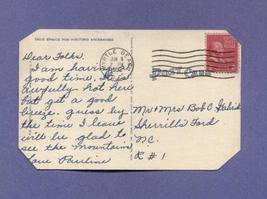 THIS SPACE FOR WRITING MESSAGES
Dear Folks.
I am having a
good time, its
awfully hot here
but get a good
breeze. guess by
the time I leave
will be glad to
see the mountains
Love Pauline
MYRTLE BEACH
POST CARD
Mr & Mrs Bob C.
Sherrills Ford
N.C.
R #1